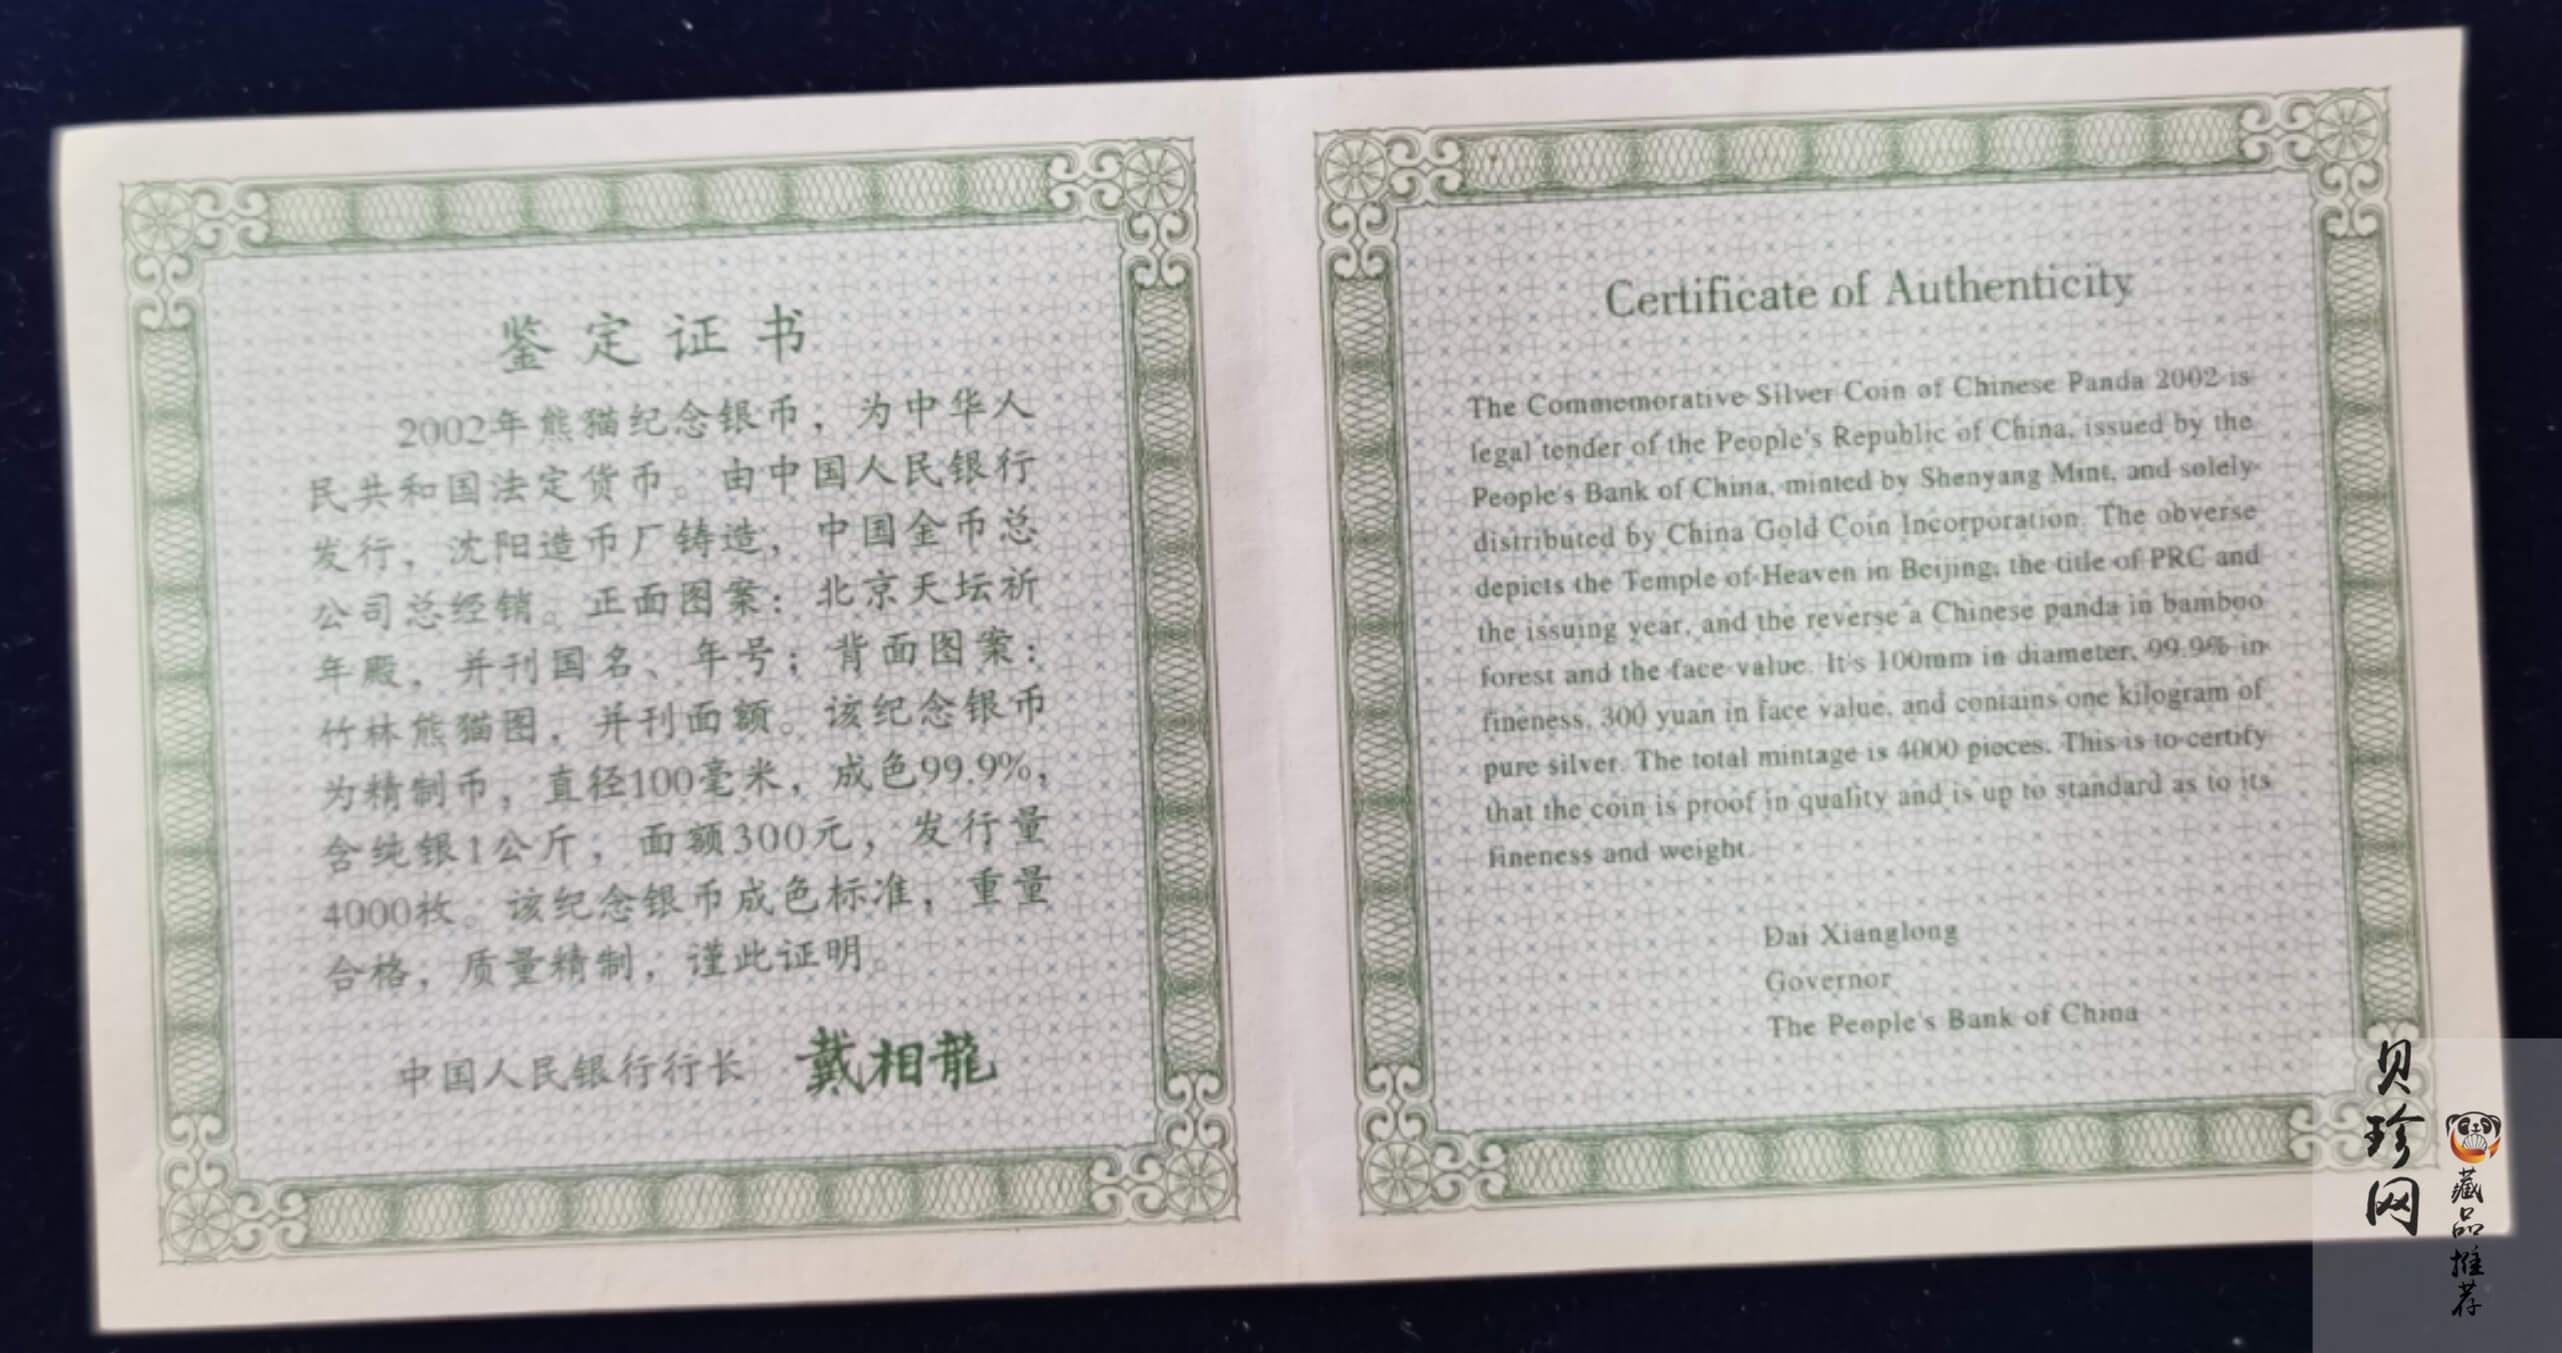 鉴定证书
2002年熊猫纪念银币，为中华人
民共和国法定货币。由中国人民银行
发行，沈阳造币厂铸造，中国金币总
公司总经销。正面图案：北京天坛祈
年殿，并刊国名、年号；背面图案：
竹林熊猫图，并刊面额。该纪念银币
为精制币，直径100毫米，成色99.9%，
含纯银1公斤，面额300元，发行量
4000枚。该纪念银币成色标准，重量
合格，质量精制，谨此证明。
中国人民银行行长 戴相龍
Certificate of Authenticity
The Commemorative Silver Coin of Chinese Panda 2002 is
legal tender of the People's Republic of China, issued by the
People's Bank of China, minted by Shenyang Mint, and solely
distributed by China Gold Coin Incorporation. The obverse
depicts the Temple of Heaven in Beijing, the title of PRC and
the issuing year, and the reverse a Chinese panda in bamboo
forest and the face value. It's 100mm in diameter, 99.9% in
fineness, 300 yuan in face value, and contains one kilogram of
pure silver. The total mintage is 4000 pieces. This is to certify
that the coin is proof in quality and is up to standard as to its
fineness and weight.
Dai Xianglong
Governor
The People's Bank of China
贝珍网
藏品推荐